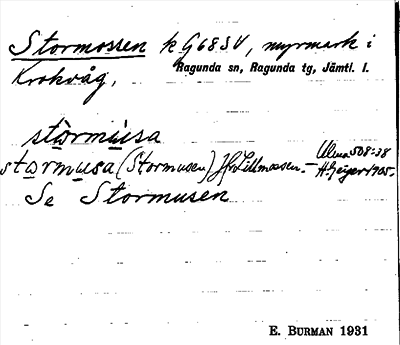 Stormossen k G68SV, myrmark i
Krokvåg, Ragunda sn, Ragunda tg, Jämtl. l.
stòrmusa
stormusa (Stormusen) Jfr Lillmossen. – Ulma 508:38
H. Geijer 1905.
Se Stormusen
E. BURMAN 1931